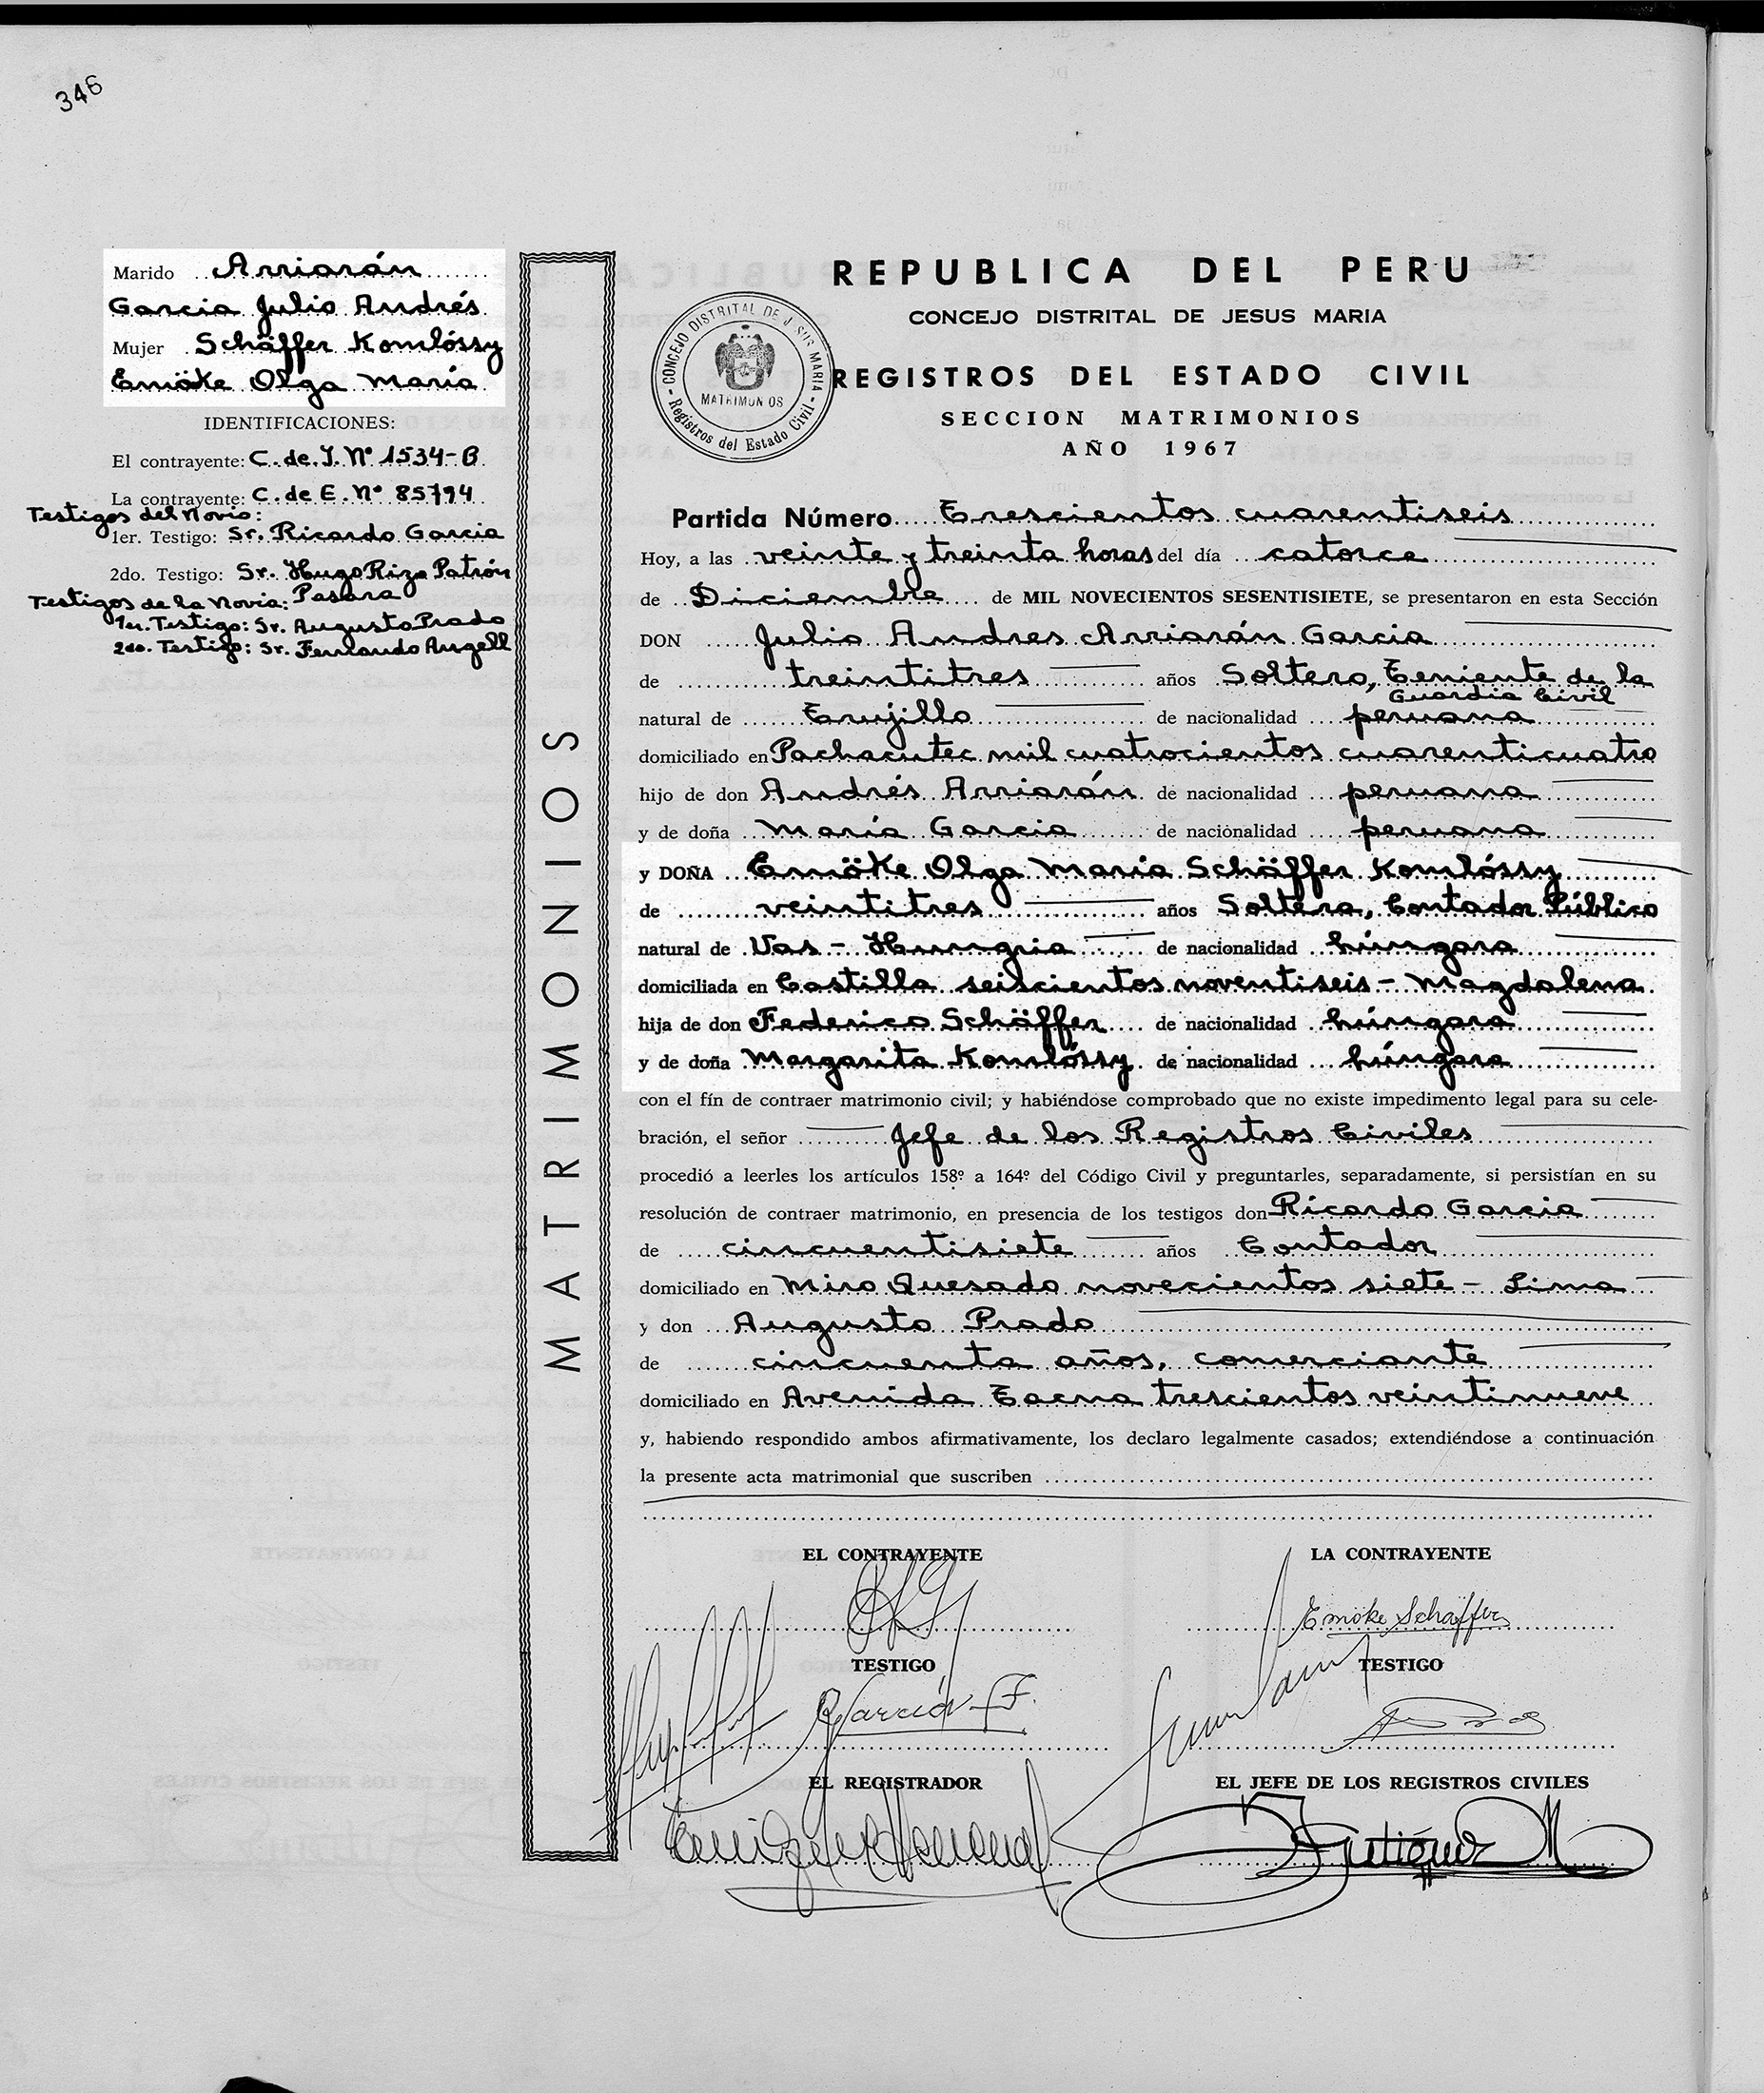 346
Marido Arriarán
Garcia Julio Andrés
Mujer Schäffer Komlóssy
Emöke Olga María
IDENTIFICACIONES:
El contrayente: C. de I. Nº 1534-B
La contrayente: C. de E. Nº 85794
Testigos del Novio:
1er. Testigo: Sr. Ricardo Garcia
2do. Testigo: Sr. Hugo Rizo Patrón
Pasara
Testigos de la Novia:
1er. Testigo: Sr. Augusto Prado
2do. Testigo: Sr. Fernando Angell
MATRIMONIOS
REPUBLICA DEL PERU
CONCEJO DISTRITAL DE JESUS MARIA
CONCEJO DISTRITAL DE JESUS MARIA
MATRIMONIOS
Registros del Estado Civil
REGISTROS DEL ESTADO CIVIL
SECCION MATRIMONIOS
AÑO 1967
Partida Número Trescientos cuarentiseis
Hoy, a las veinte y treinta horas del día catorce
de Diciembre de MIL NOVECIENTOS SESENTISIETE, se presentaron en esta Sección
DON Julio Andres Arriarán Garcia
de treintitres años Soltero, Teniente de la
Guardia Civil
natural de Trujillo de nacionalidad peruana
domiciliado en Pachacutec mil cuatrocientos cuarenticuatro
hijo de don Andrés Arriarán de nacionalidad peruana
y de doña María Garcia de nacionalidad peruana
y DOÑA Emöke Olga María Schäffer Komlóssy
de veintitres años Soltera, Contador Público
natural de Vas - Hungria de nacionalidad húngara
domiciliada en Castilla seiscientos noventiseis - Magdalena
hija de don Federico Schäffer de nacionalidad húngara
y de doña Margarita Komlóssy de nacionalidad húngara
con el fín de contraer matrimonio civil; y habiéndose comprobado que no existe impedimento legal para su cele-
bración, el señor Jefe de los Registros Civiles
procedió a leerles los artículos 158º a 164º del Código Civil y preguntarles, separadamente, si persistían en su
resolución de contraer matrimonio, en presencia de los testigos don Ricardo Garcia
de cincuentisiete años Contador
domiciliado en Miro Quesada novecientos siete - Lima
y don Augusto Prado
de cincuenta años, comerciante
domiciliado en Avenida Tacna trescientos veintinueve
y, habiendo respondido ambos afirmativamente, los declaro legalmente casados; extendiéndose a continuación
la presente acta matrimonial que suscriben
EL CONTRAYENTE
LA CONTRAYENTE
Emöke Schäffer
TESTIGO
TESTIGO
EL REGISTRADOR
EL JEFE DE LOS REGISTROS CIVILES